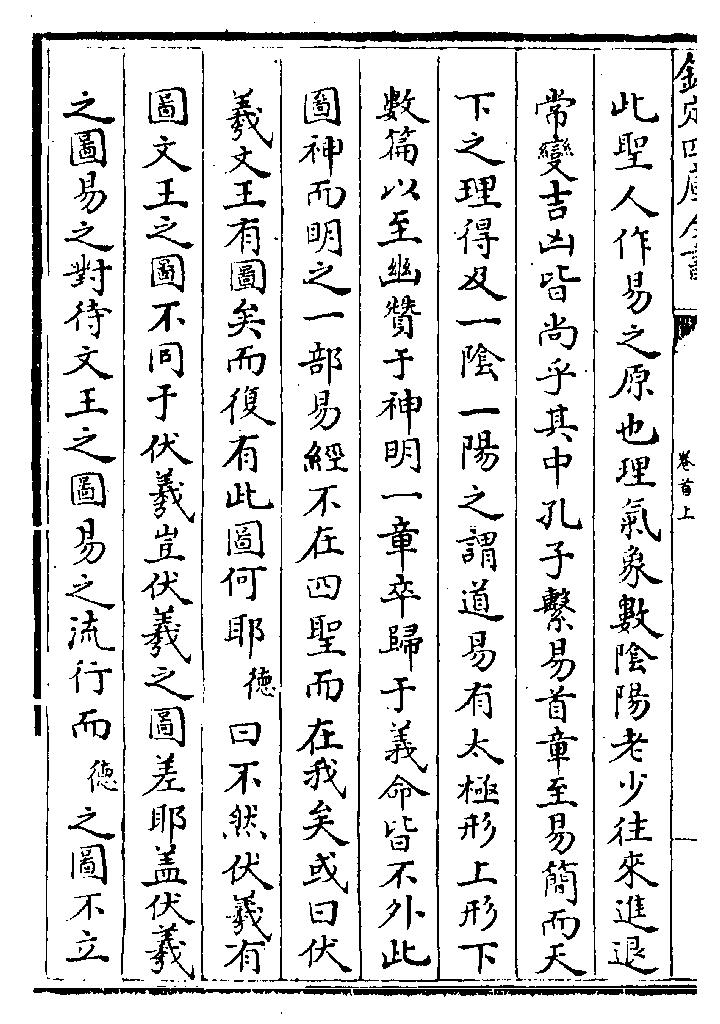 欽定四庫全書
卷首上
此聖人作易之原也理氣象數隂陽老少往來進退
常變吉凶皆尚乎其中孔子繫易首章至易簡而天
下之理得及一隂一陽之謂道易有太極形上形下
數篇以至幽贊于神明一章卒歸于義命皆不外此
圖神而明之一部易經不在四聖而在我矣或曰伏
羲文王有圖矣而復有此圖何耶德曰不然伏羲有
圖文王之圖不同于伏羲豈伏羲之圖差耶盖伏羲
之圖易之對待文王之圖易之流行而德之圖不立